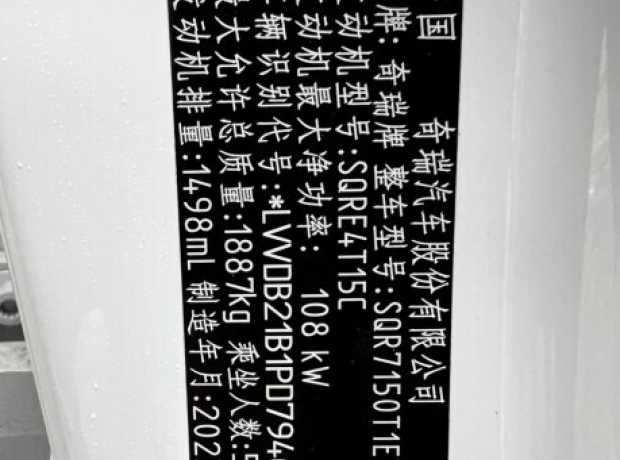 中国 奇瑞汽车股份有限公司
牌:奇瑞牌 整车型号:SQR7150T1E
发动机型号:SQRE4T15C
发动机最大净功率: 108 kW
车辆识别代号:*LVVDB21B1PD794
最大允许总质量:1887kg 乘坐人数:5
发动机排量:1498mL 制造年月:202